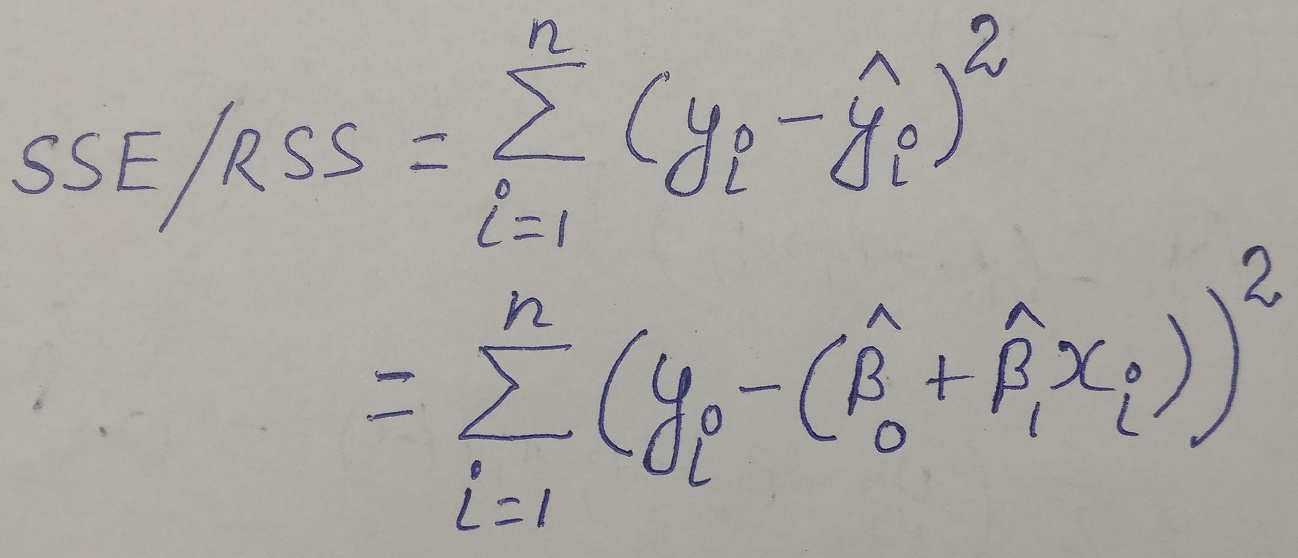 SSE/RSS = \sum_{i=1}^{n} (y_i - \hat{y}_i)^2
= \sum_{i=1}^{n} (y_i - (\hat{\beta}_0 + \hat{\beta}_1 x_i))^2